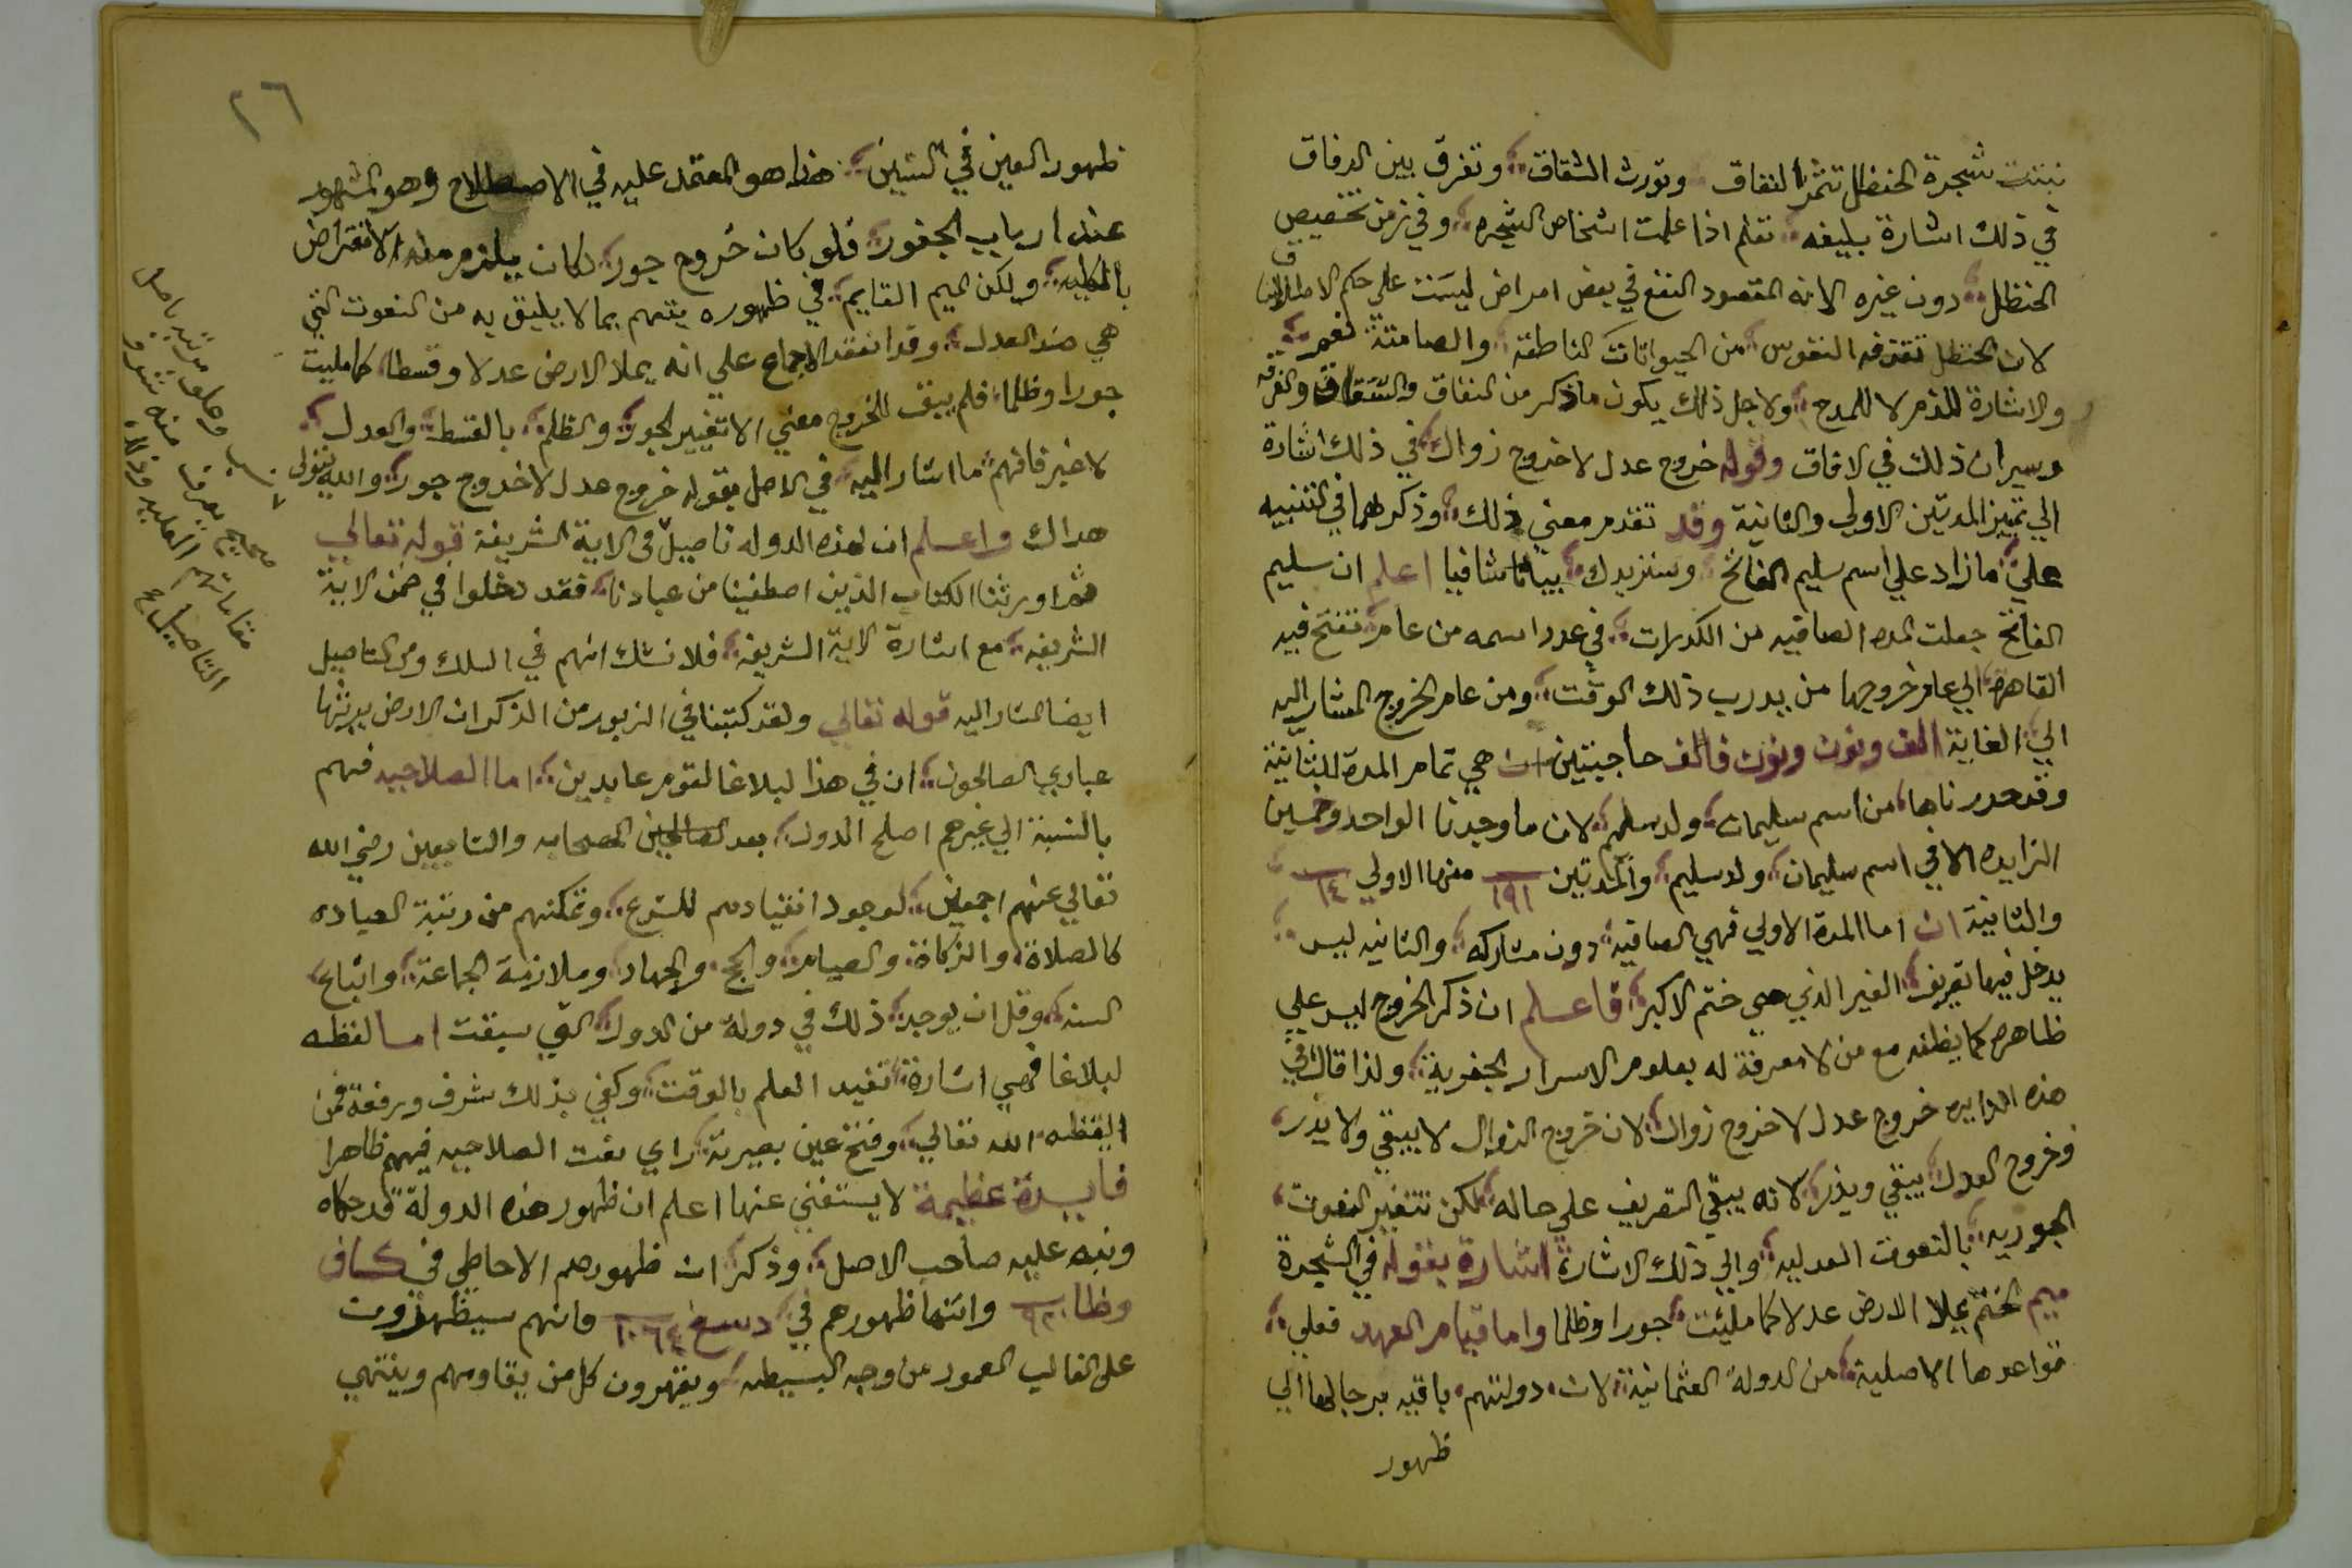 نبتت شجرة الحنظل تثمر النفاق وتورث الشقاق وتفرق بين الرفاق
في ذلك اشارة بليغه تعلم اذا علمت اشخاص الشجره وفي زمن تخصيص
الحنظل دون غيره الا انه المقصود النفع في بعض امراض ليست علي حكم الاطلاق
لان الحنظل تقذفه النفوس من الحيوانات الناطقة والصامتة نعم
والاشارة للذم لا للمدح ولاجل ذلك يكون ما ذكر من النفاق والشقاق والفرقه
وسيران ذلك في الافاق وقوله خروج عدل لا خروج زوال في ذلك اشارة
الي تمييز المدتين الاولي والثانية وقد تقدم معني ذلك وذكرهما في التنبيه
علي ما زاد علي اسم سليم الفاتح وسنزيدك بيانا شافيا اعلم ان سليم
الفاتح جعلت المده الصافيه من الكدرات في عدد اسمه من عام تفتح فيه
القاهره الي عام خروجها من يد رب ذلك الوقت ومن عام الخروج المشار اليه
الي الغاية الف ونون ونون فالف حاجبتين ان هي تمام المدة الثانية
وقد حررناها من اسم سليمان ولد سليم لان ما وجدنا الواحد وخمسين
الزايده الا في اسم سليمان ولد سليم والمدتين ١٩١ منها الاولي ١٤
والثانية ان اما المدة الاولي فهي الصافيه دون مشاركه والثانيه ليس
يدخل فيها تعريف الغير الذي هي ختم الاكبر فاعلم ان ذكر الخروج ليس علي
ظاهره كما يظنه مع من لا معرفة له بعلوم الاسرار الجفرية ولذا قال في
هذه الدايره خروج عدل لا خروج زوال لان خروج الزوال لا يبقي ولا يذر
فخروج العدل يبقي ويذر لانه يبقي التعريف علي حاله لكن تتغير النعوت
الجوريه بالنعوت العدليه والي ذلك الاشارة اشارة بقوله في الشجرة
ميم الختم يملا الارض عدلا كما ملئت جورا وظلما واما قيام العهد فعلي
قواعدها الاصلية من الدولة العثمانية لان دولتهم باقيه برجالها الي
ظهور
٢٦
ظهور العين في السين هذا هو المعتمد عليه في الاصطلاح وهو المشهور
عند ارباب الجفور فلو كان خروج جور لكان يلزم منه الانقراض
بالكليه ولكن الميم القايم في ظهوره يتهم بما لا يليق به من النعوت التي
هي ضد العدل وقد انعقد الاجماع علي انه يملا الارض عدلا وقسطا كما مليت
جورا وظلما فلم يبق للخروج معني الا تغيير الجور والظلم بالقسط والعدل
لا غير فافهم ما اشار اليه في الاصل بقوله خروج عدل لا خروج جور والله يتولي
هداك واعلم ان لهذه الدوله تاصيل في الاية الشريفة قوله تعالي
ثم اورثنا الكتاب الذين اصطفينا من عبادنا فقد دخلوا في ضمن الاية
الشريفه مع اشارة الاية الشريفه فلا نشك انهم في السلك ومن التاصيل
ايضا المشار اليه قوله تعالي ولقد كتبنا في الزبور من الذكر ان الارض يرثها
عبادي الصالحون ان في هذا لبلاغا لقوم عابدين اما الصلاحيه فهم
بالنسبة الي غيرهم اصلح الدول بعد الصالحين الصحابه والتابعين رضي الله
تعالي عنهم اجمعين لوجود انقيادهم للشرع وتمكنهم من رتبة العباده
كالصلاة والزكاة والصيام والحج والجهاد وملازمة الجماعة واتباع
السنه وقل ان يوجد ذلك في دولة من الدول التي سبقت اما لفظه
لبلاغا فهي اشارة تفيد العلم بالوقت وكفي بذلك شرف ورفعة فمن
ايقظه الله تعالي وفتح عين بصيرته راي نعت الصلاحيه فيهم ظاهرا
فايدة عظيمة لا يستغني عنها اعلم ان ظهور هذه الدولة قد حكاه
ونبه عليه صاحب الاصل وذكر ان ظهورهم الاحاطي في كاف
وظا ٩٢٠ وانتها ظهورهم في دسغ ١٠٦٤ فانهم سيظهرون
علي الغالب المعمور من وجه البسيطه ويقهرون كل من يقاومهم وينتهي
صحيح يعرف منه شرف
مقاماتهم العليه وذلك
التاصيل